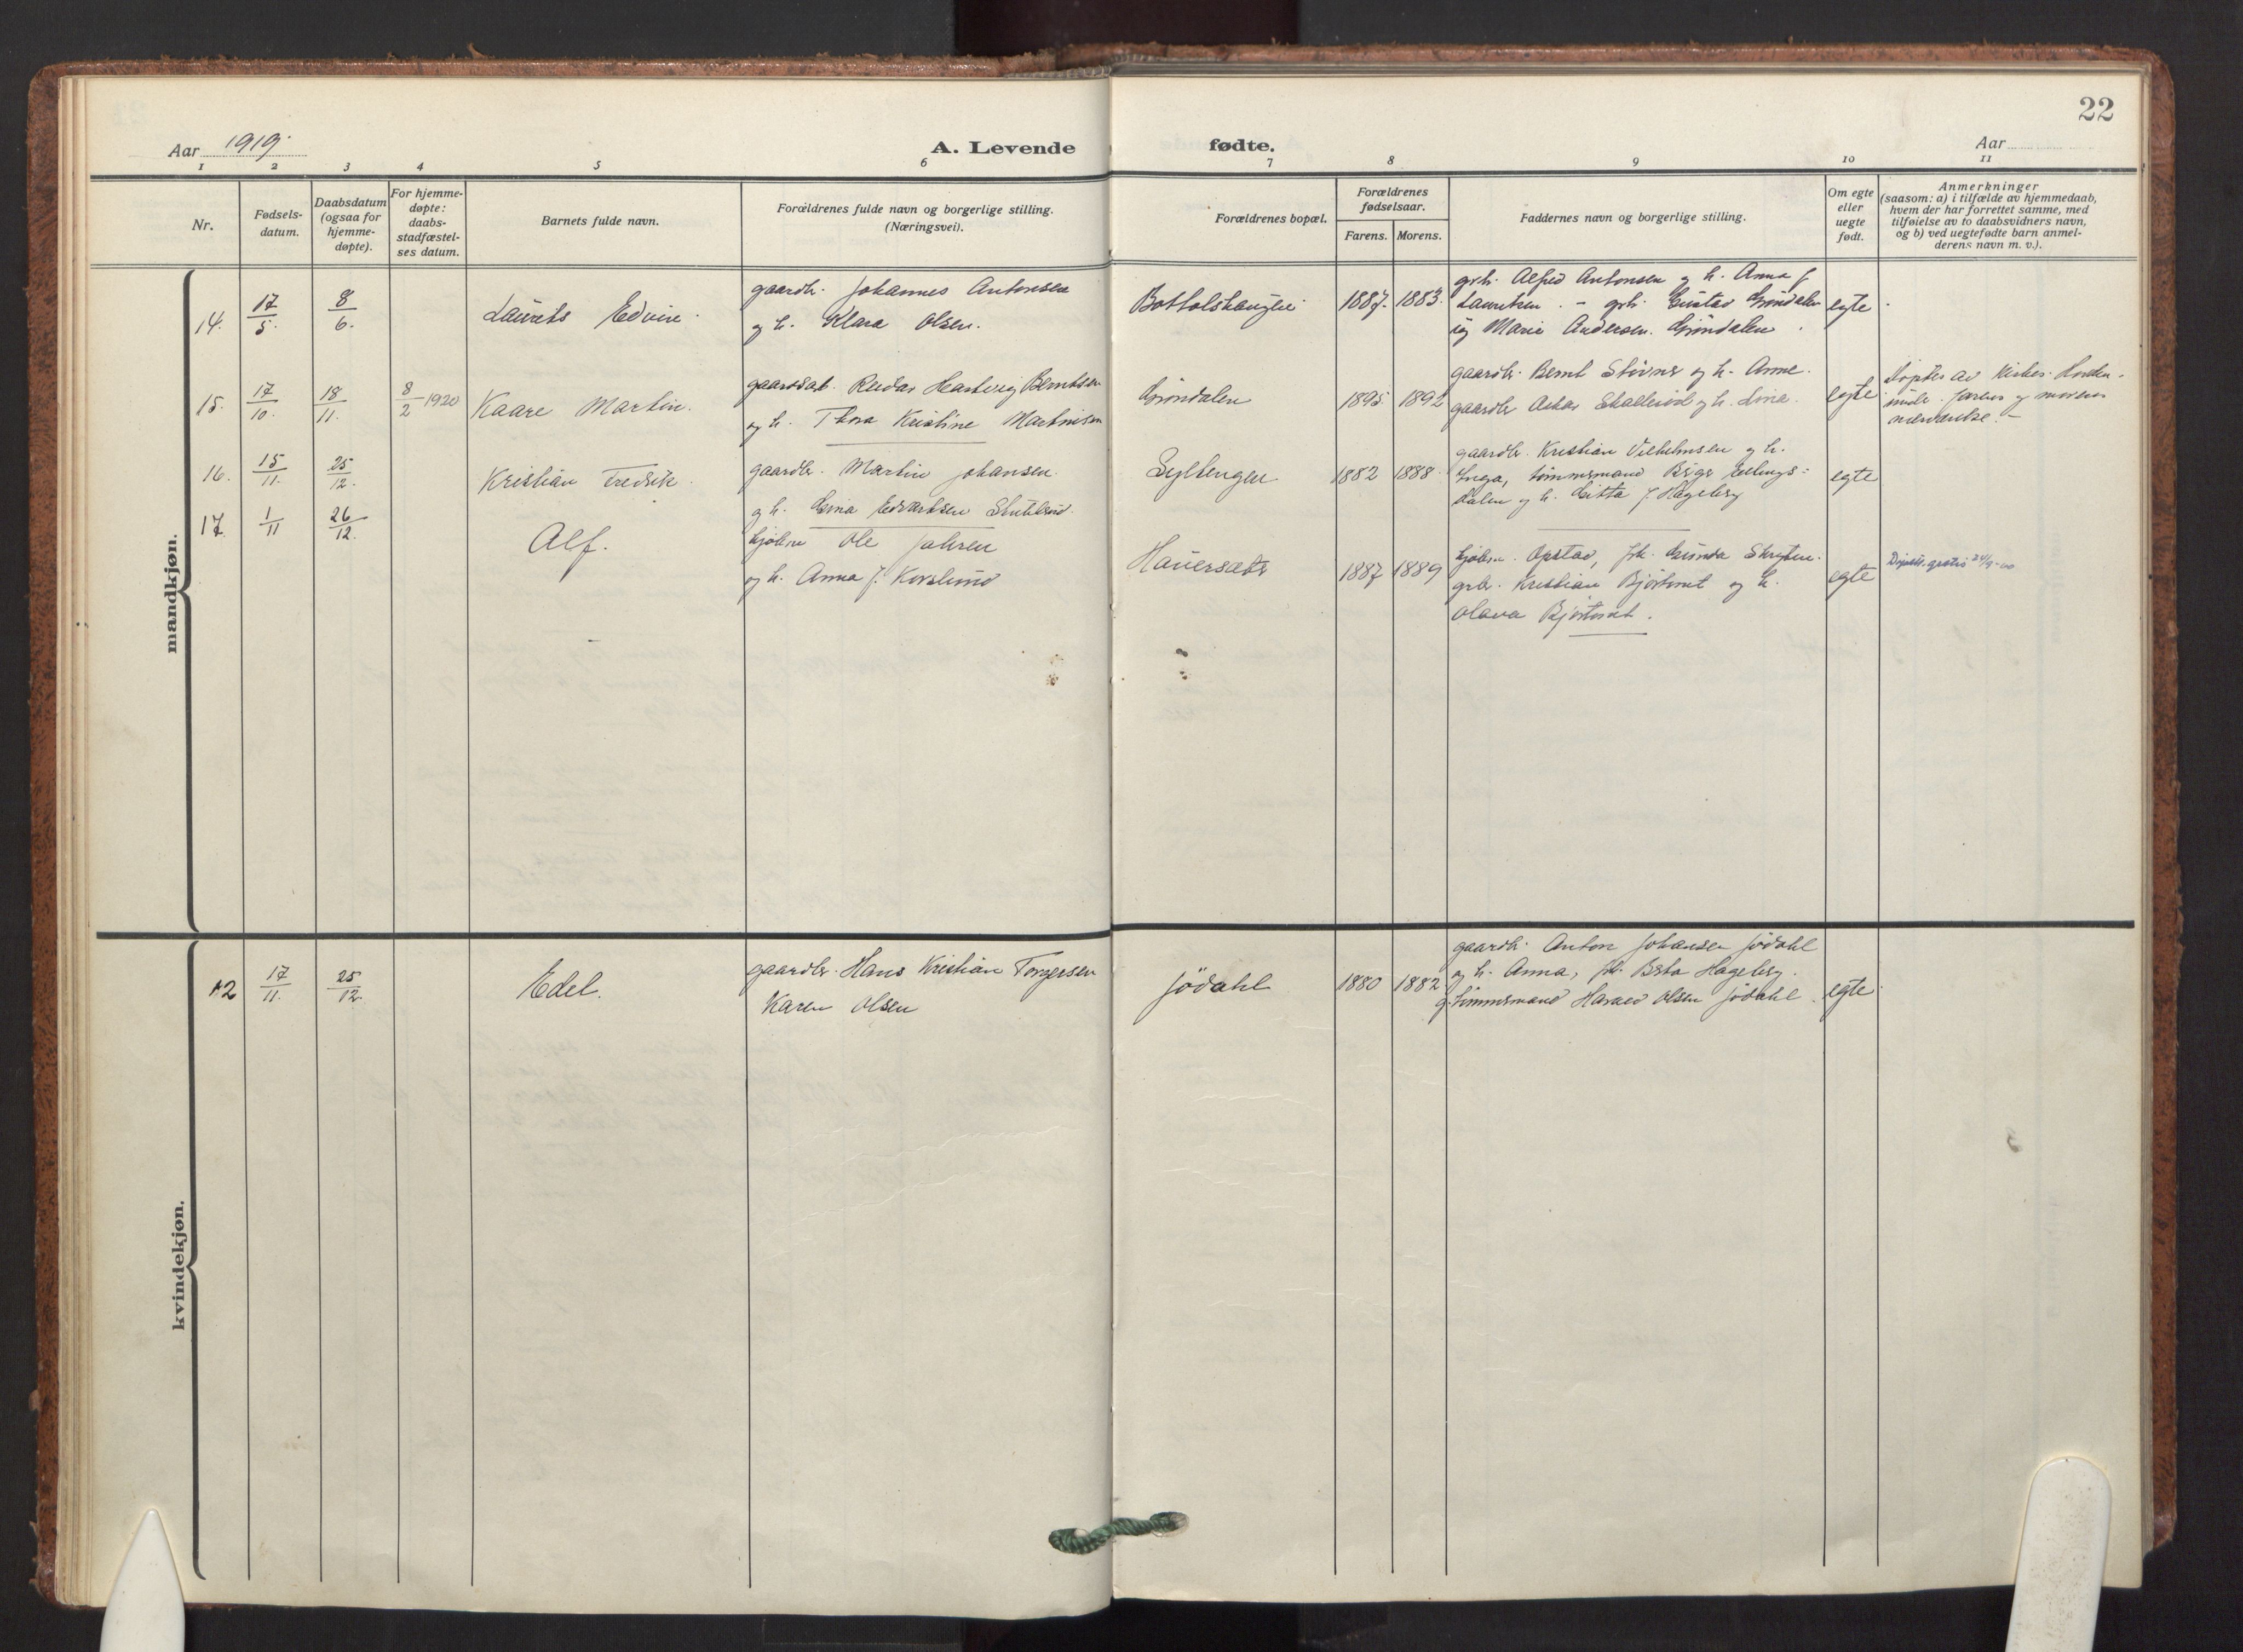 22
Aar 1919.
A. Levende
fødte.
Aar
1 2 3 4 5 6 7 8 9 10 11
Nr.
Fødsels-
datum.
Daabsdatum
(ogsaa for
hjemme-
døpte).
For hjemme-
døpte:
daabs-
stadfæstel-
ses datum.
Barnets fulde navn.
Forældrenes fulde navn og borgerlige stilling.
(Næringsvei).
Forældrenes bopæl.
Forældrenes
fødselsaar.
Farens. Morens.
Faddernes navn og borgerlige stilling.
Om egte
eller
uegte
født.
Anmerkninger
(saasom: a) i tilfælde av hjemmedaab,
hvem der har forrettet samme, med
tilføielse av to daabsvidners navn,
og b) ved uegtefødte barn anmel-
derens navn m. v.).
mandkjøn.
14. 17/5. 8/6. Laurits Edvin.
gaardbr. Johannes Antonsen
og h. Klara Olsen.
1887. 1883.
grbr. Alfred Antonsen og h. Anna f.
Lauritsen. - grbr. Gustav Gröndalen
og Marie Andersen. Gröndalen.
egte
15. 17/10. 18/11. 8/2 1920 Kaare Martin.
Reidar Hartvig Berntsen
og h. Thora Kristine Martinsen
Gröndalen
1895. 1892
gaardbr. Bernt Stövner og h. Anne.
gaardbr Oskar og h. Lina.
egte
Döptes av
farens og morens
nærværelse. -
16. 15/11. 25/12. Kristian Fredrik.
gaardbr. Martin Johansen.
og h. Gina Edvartsen
Syltengen
1882 1888.
gaardbr. Kristian Vilhelmsen og h.
Inga, tömmermand Birger
dalen og h. Gitta f. Hageby
egte
17. 1/11 26/12. Alf.
kjöbm Ole Jahren
og h. Anna f. Korslund
1887 1889
kjöbm. Opstad, frk. Gunda
grbr. Kristian Bjørtomt og h.
Olava Bjørtomt.
egte
gratis
kvindekjøn.
12 17/11. 25/12. Edel.
gaardbr. Hans Kristian Torgersen
Karen Olsen
Jödahl
1880 1882
gaardbr. Anton Johansen Jödahl
og h. Anna, frk. Berta Hageby.
og tömmermand Harald Olsen Jödahl.
egte